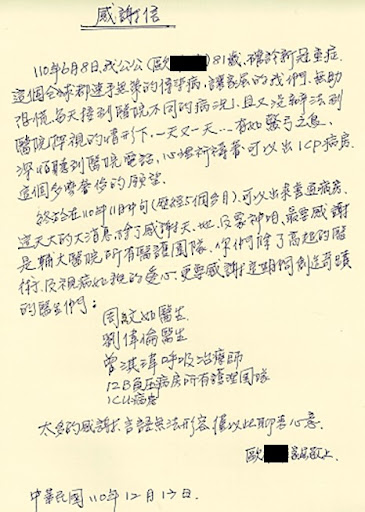 感謝信
110年6月8日,我公公(歐 )81歲,確診新冠重症.
這個全球都連手抗禦的傳染病,讓家屬的我們,無助
阻慌,每天接到醫院不同的病況,且又沒辦法到
醫院探視的情形下,一天又一天…有如驚弓之鳥,
深怕聽到醫院電話,心裡祈禱著可以出ICU病房.
這個多麼奢侈的願望.
終於在110年11月中旬(歷經5個多月),可以出來普通病房,
這天大的大消息,除了感謝天、地、及眾神明,最要感謝
是輔大醫院所有醫護團隊.你們除了高超的醫
術,及視病如親的愛心,更要感謝這期間創造奇蹟
的醫生們:
周玟如醫生
劉偉倫醫生
曾淇瑋呼吸治療師
12B負壓病房所有護理團隊
ICU病房
太多的感謝,言語無法形容,僅以此聊表心意.
歐 家屬敬上.
中華民國110年12月17日.